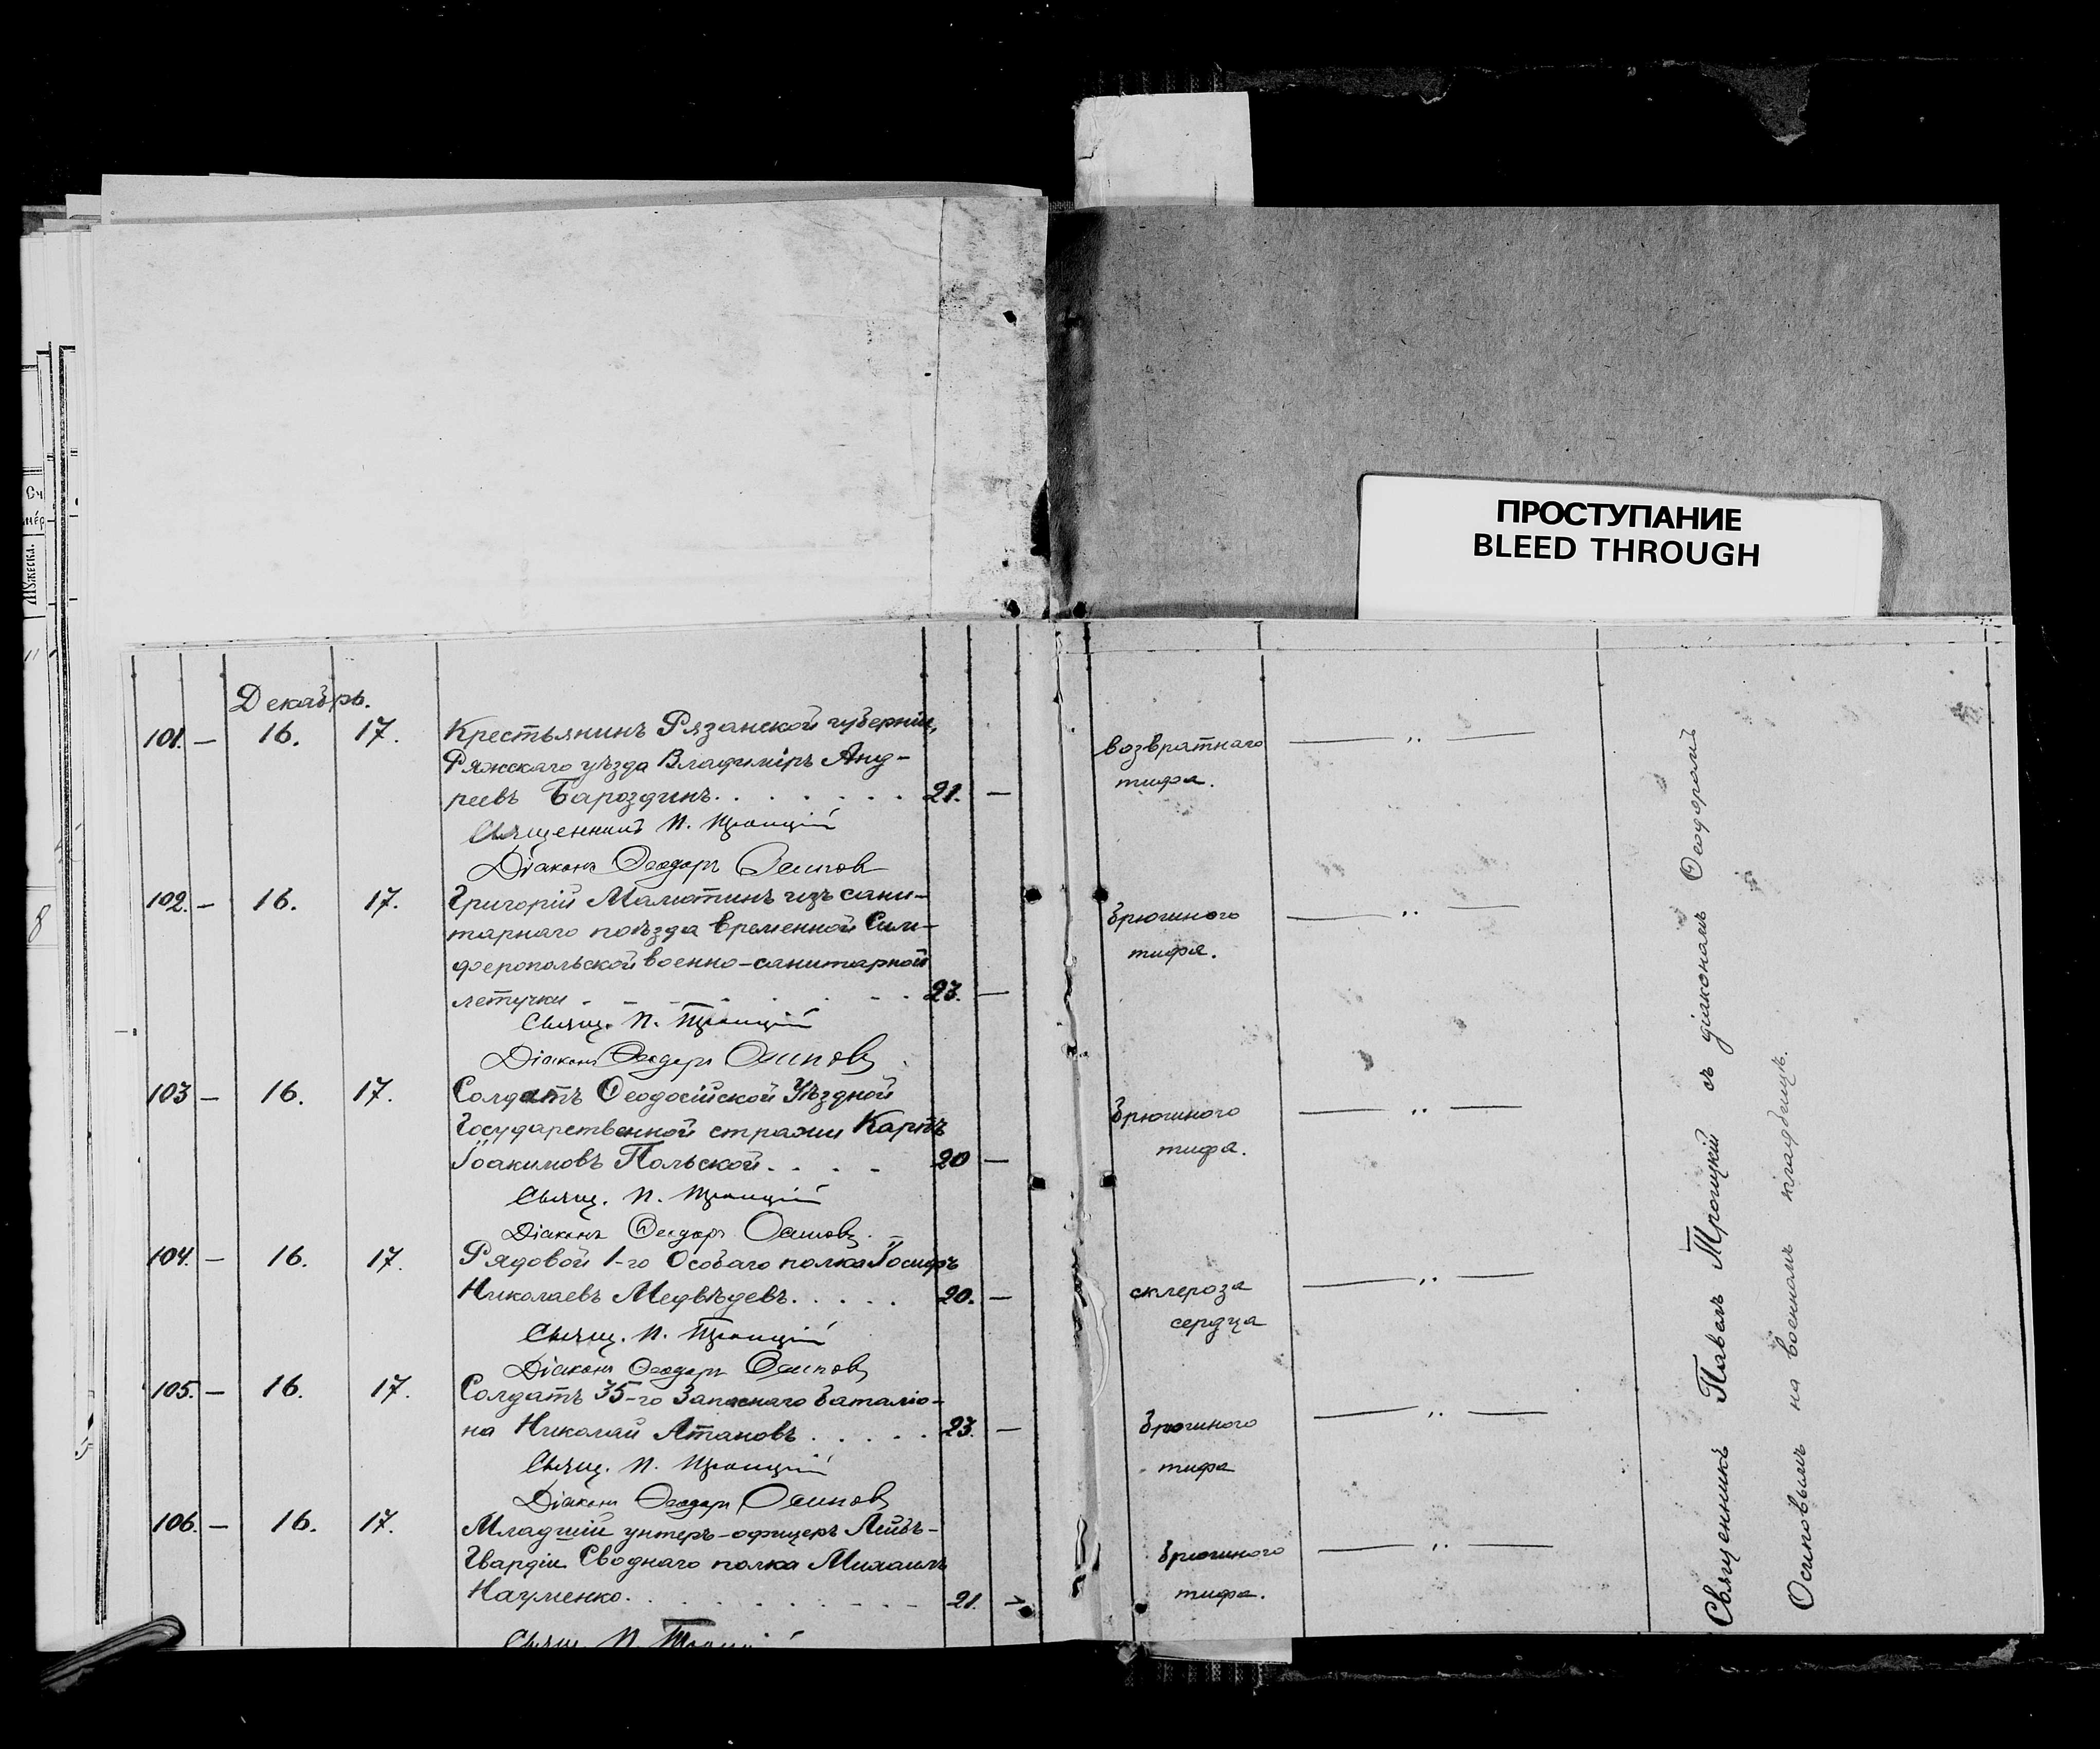 ПРОСТУПАНИЕ
BLEED THROUGH
Декабрь.
101. — 16. 17. Крестьянинъ Рязанской губерніи,
Ряжскаго уѣзда Владиміръ Анд-
реевъ Бароздинъ. . . . . . . 21. —
Священникъ П. Троицкій
Діаконъ Ѳеодоръ Осиповъ
возвратнаго — „ —
тифа.
102. — 16. 17. Григорій Малютинъ изъ сани-
тарнаго поѣзда временной Сим-
феропольской военно-санитарной
летучки . . . . . . . 23. —
Свящ. П. Троицкій
Діаконъ Ѳеодоръ Осиповъ
брюшного — „ —
тифа.
103 — 16. 17. Солдатъ Ѳеодосійской Уѣздной
Государственной стражи Карпъ
Іоакимовъ Польской. . . . 20 —
Свящ. П. Троицкій
Діаконъ Ѳеодоръ Осиповъ.
брюшного — „ —
тифа.
104. — 16. 17. Рядовой 1-го Особаго полка Іосифъ
Николаевъ Медвѣдевъ. . . . . 20. —
Свящ. П. Троицкій
Діаконъ Ѳеодоръ Осиповъ
склероза — „ —
сердца
105. — 16. 17. Солдатъ 35-го Запаснаго баталіо-
на Николай Атановъ . . . . . 23. —
Свящ. П. Троицкій
Діаконъ Ѳеодоръ Осиповъ
брюшного — „ —
тифа
106. — 16. 17. Младшій унтеръ-офицеръ Лейбъ-
Гвардіи Своднаго полка Михаилъ
Науменко. . . . . . . . . 21. —
Свящ. П. Троицкій
брюшного — „ —
тифа.
Священникъ Павелъ Троицкій съ діакономъ Ѳеодоромъ
Осиповымъ на военномъ кладбищѣ.